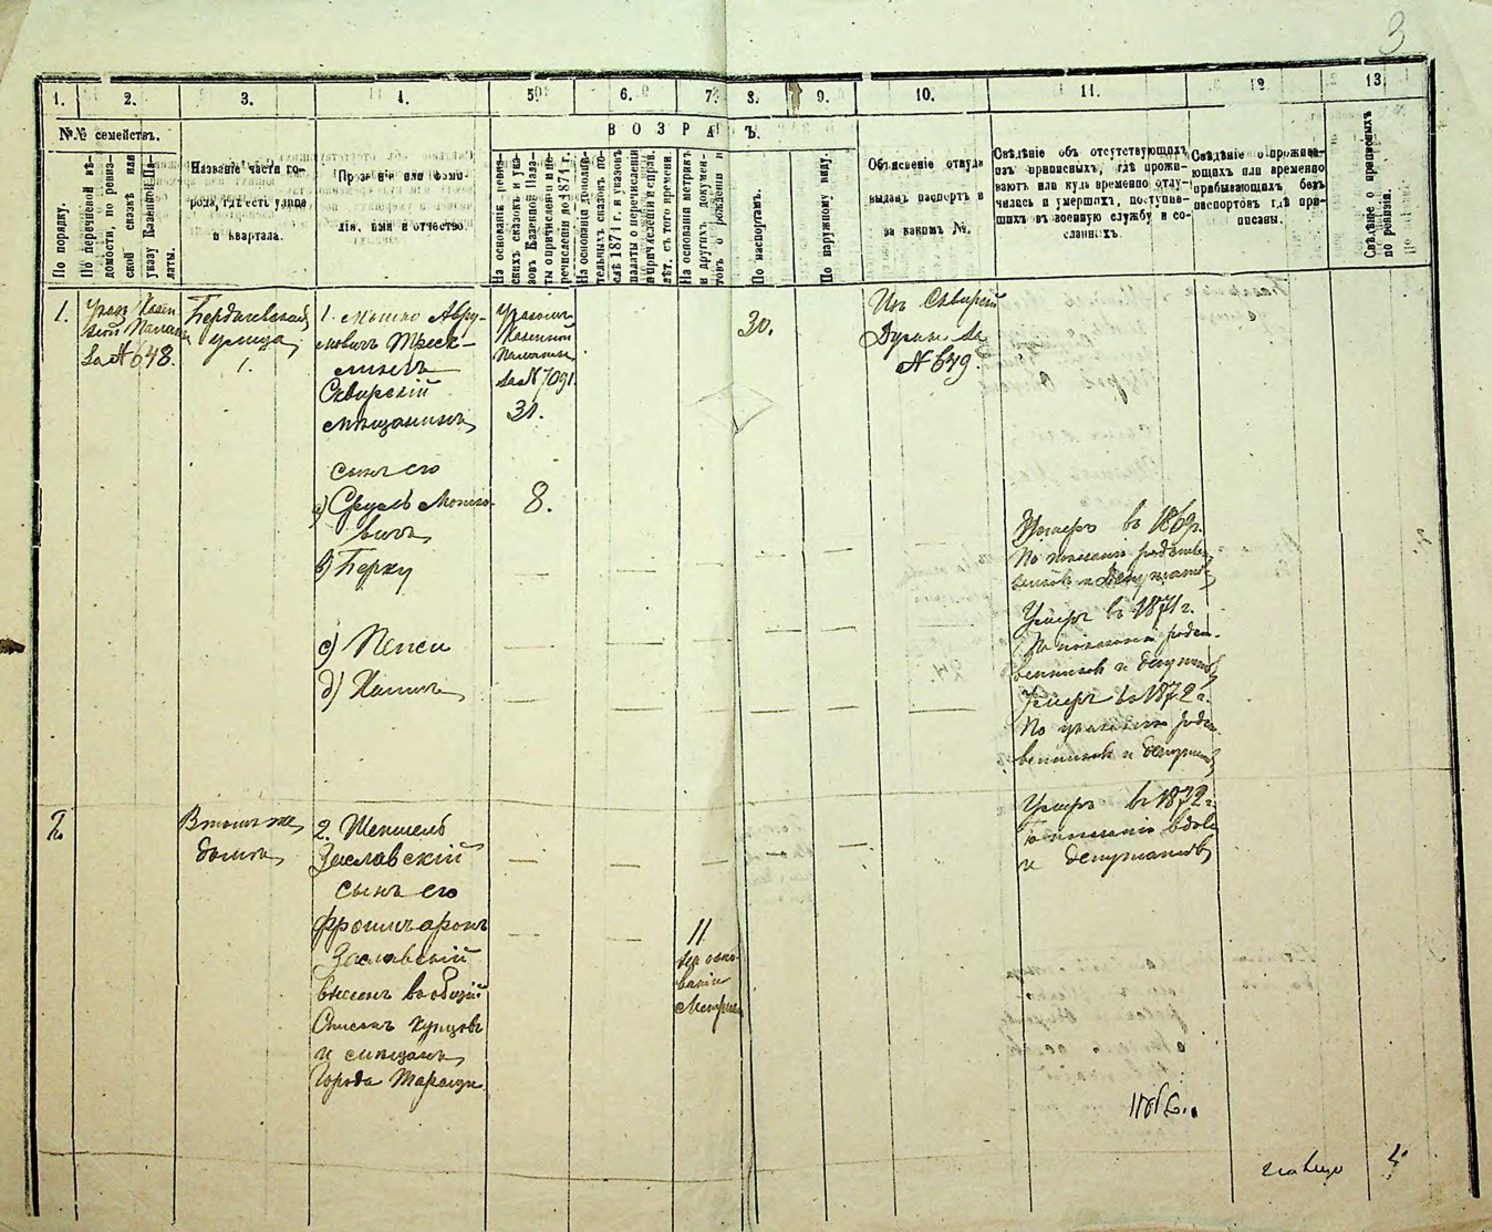 3
1.
2.
3.
4.
5
6.
7
8.
9.
10.
11.
12
13
№№ семействъ.
По порядку.
По перечневой вѣ-
домости, по ревиз-
ской сказкѣ или
указу Казенной Па-
латы.
Названіе части го-
рода, гдѣ есть улица
и квартала.
Прозваніе или фами-
лія, имя и отчество.
ВОЗРА Ъ.
На основаніи ревиз-
скихъ сказокъ и ука-
зовъ Казенной Пала-
ты о причисленіи и пе-
речисленіи до 1874 г.
На основаніи дополни-
тельныхъ сказокъ по-
слѣ 1874 г. и указовъ
палаты о перечисленіи
и причисленіи и справ.
лѣт. съ того времени.
На основаніи метрикъ
и другихъ докумен-
товъ о рожденіи и
По паспортамъ.
По наружному виду.
Объясненіе откуда
выданъ паспортъ и
за какимъ №.
Свѣдѣніе объ отсутствующихъ
изъ приписныхъ, гдѣ прожи-
ваютъ или куда временно отлу-
чились и умершихъ, поступив-
шихъ въ военную службу и со-
сланныхъ.
Свѣдѣніе о прожива-
ющихъ или временно
прибывающихъ безъ
паспортовъ гдѣ при-
писаны.
Свѣдѣніе о приписныхъ
по ревизіи.
1.
Указ Казен
ной Палаты
за № 648.
Бердичевская
улица
1.
1. Мошко Авру-
мовичъ
Сквирскій
мѣщанинъ
сынъ его
а) Сруль Мошко-
вичъ
в) Берку
с) Пейси
д) Хаимъ
Указомъ
Казенной
Палаты
за № 7091.
31.
8.
30.
Изъ Сквирской
Думы за
№ 649.
Умеръ въ 1869г.
По показанію родствен-
никовъ и депутатовъ
Умеръ въ 1871г.
По показанію родст-
венниковъ и депутатовъ
Умеръ въ 1872г.
По показанію родст-
венниковъ и депутатовъ
2
Въ томъ же
домѣ
2. Шепшель
Заславскій
сынъ его
Фроимъ аронъ
Заславскій
внесенъ въ общій
Списокъ купцовъ
и мѣщанъ
города Таращи
11
на осно-
ваніи
Метрики
Умеръ въ 1872г.
По показанію вдовы
и депутатовъ